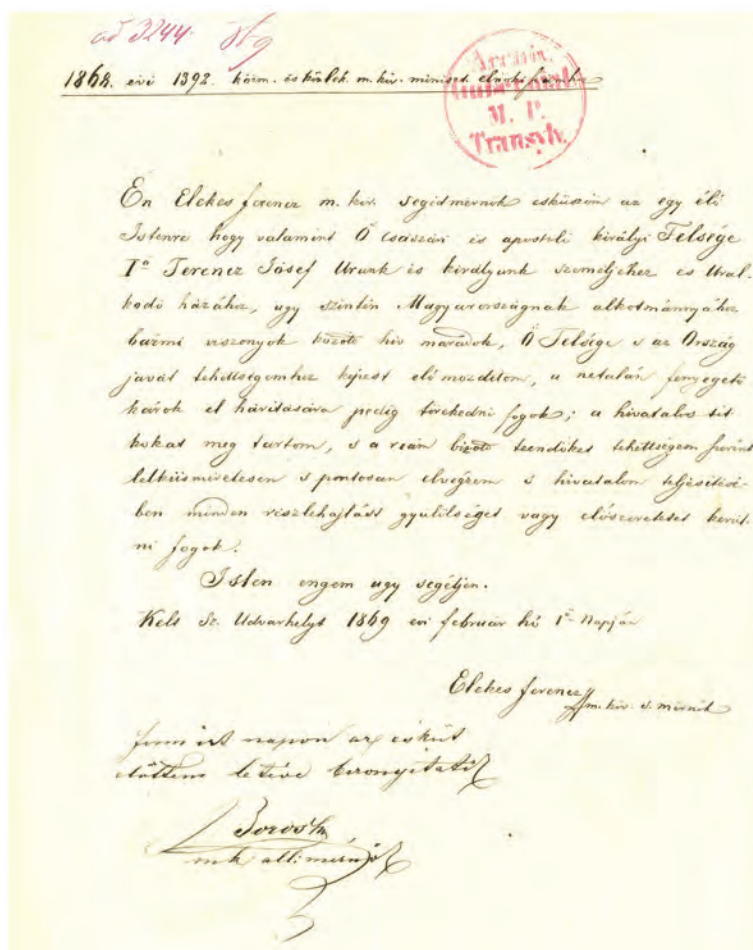 ad 3244. 869
1868. évi 1392. közm. és közlek. m. kir. minist. elnöki számhoz
Archiv.
Gubernial.
M. P.
Transylv.
Én Elekes ferencz m. kir. segédmérnök esküszöm az egy élő
Istenre hogy valamint Ő Császári és apostoli királyi Felsége
Iő Ferencz József Urunk és királyunk személyéhez és Ural-
kodó házához, ugy szintén Magyarországnak alkotmányához
bármi viszonyok között hiv maradok, Ő Felsége s az Ország
javát tehettségemhez képest elő mozditom, a netalán fenyegető
károk el háritására pedig törekedni fogok; a hivatalos tit
kokat meg tartom, s a reám bizott teendőket tehettségem szerint
lelkiismeretesen s pontosan elvégzem s hivatalom teljesitésé-
ben minden részlehajlást gyülölséget vagy előszeretetet kerül-
ni fogok.
Isten engem ugy segéljen.
Kelt Sz. Udvarhelyt 1869 évi február hó 1ő Napján
Elekes ferencz
m. kir. s. mérnök
fenn irt napon az esküt
előttem le téve bizonyitatik
Boros
mk all. mérnök